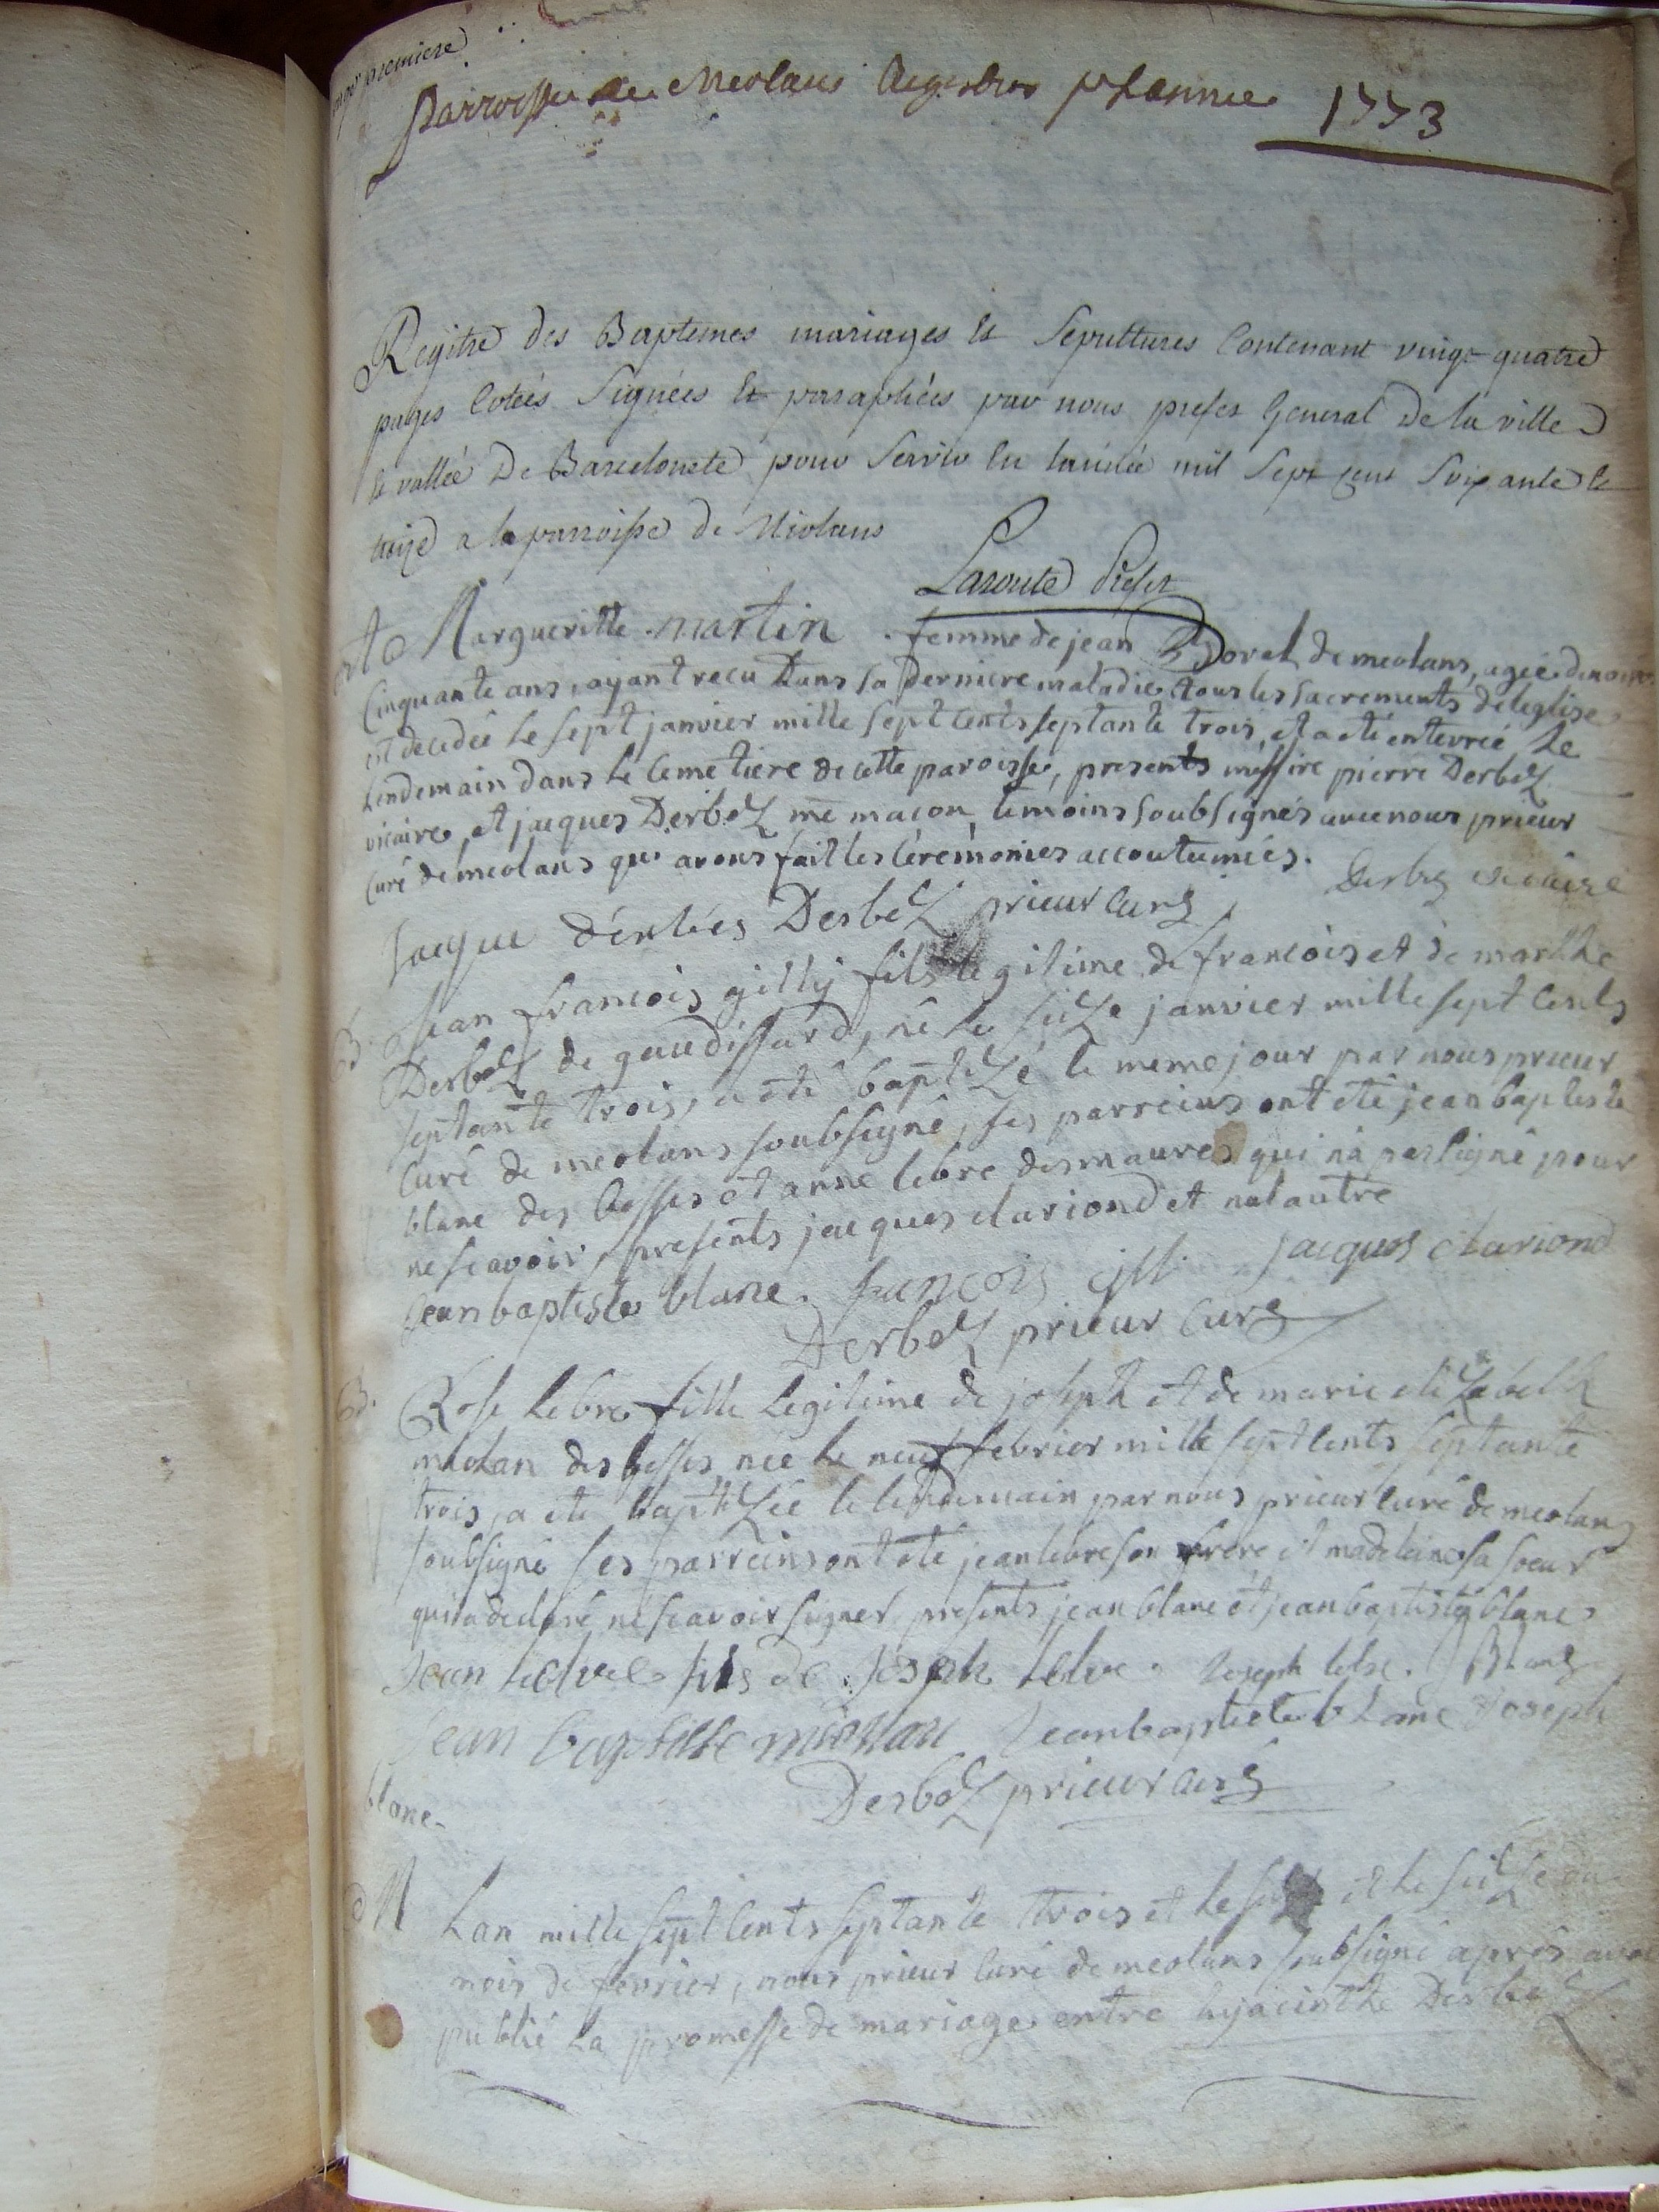 page premiere
Parroisse de Meolans Registres pr Lannee 1773
Regitre des Baptemes mariages Et Sepultures Contenant vingt quatre
pages Cotées Signées Et paraphées par nous prefet General De la ville
Et vallée De Barcelonete pour Servir En Lannée mil Sept cent Soixante Et
treize a la parroisse de Miolans
Laroute Prefet
Margueritte martin femme de jean Dorel de meolans, agée denviron
Cinquante ans, ayant recu Dans sa Derniere maladie tous les sacrements de leglise
est decedée le sept janvier mille sept cents septante trois, et a eté enterrée le
Lendemain dans le Cemetiere de cette paroisse, presents messire pierre Derbez
vicaire, et jacques Derbez me macon, temoins soubsignés avec nous prieur
Curé de meolans qui avons fait les Cérémonies accoutumées. Derbez vicaire
jacque dérbés Derbez prieur Curé
B. Jean francois gilly fils legitime de francois et de marthe
Derbez de gaudissard, né le seize janvier mille sept Cents
septante trois, a eté baptizé le meme jour par nous prieur
Curé de meolans soubsigné, ses parreins ont eté jean baptiste
blanc des besses et anne lebre des maures qui n'a pas signé pour
ne scavoir, presents jacques clariond et nul autre
jean baptiste blanc. francois gilli jacques clariond
Derbez prieur Curé
B. Rose Lebre fille Legitime de joseph et de marie elizabeth
meolan des besses, née le neuf febrier mille sept cents septante
trois, a eté baptizée le lendemain par nous prieur Curé de meolans
soubsigné ses parreins ont eté jean lebre son frere et madelaine sa soeur
qui a declaré ne scavoir signer, presents jean blanc et jean baptiste blanc
jean lebre fils de joseph lebre. Joseph lebre. Blanc
jean baptiste meollan jean baptiste blanc joseph
blanc- Derbez prieur Curé
M Lan mille sept Cents septante trois et le et le seize du
mois de fevrier, nous prieur Curé de meolans soubsigné après avoir
publié La promesse de mariage entre hyacinthe Derbez